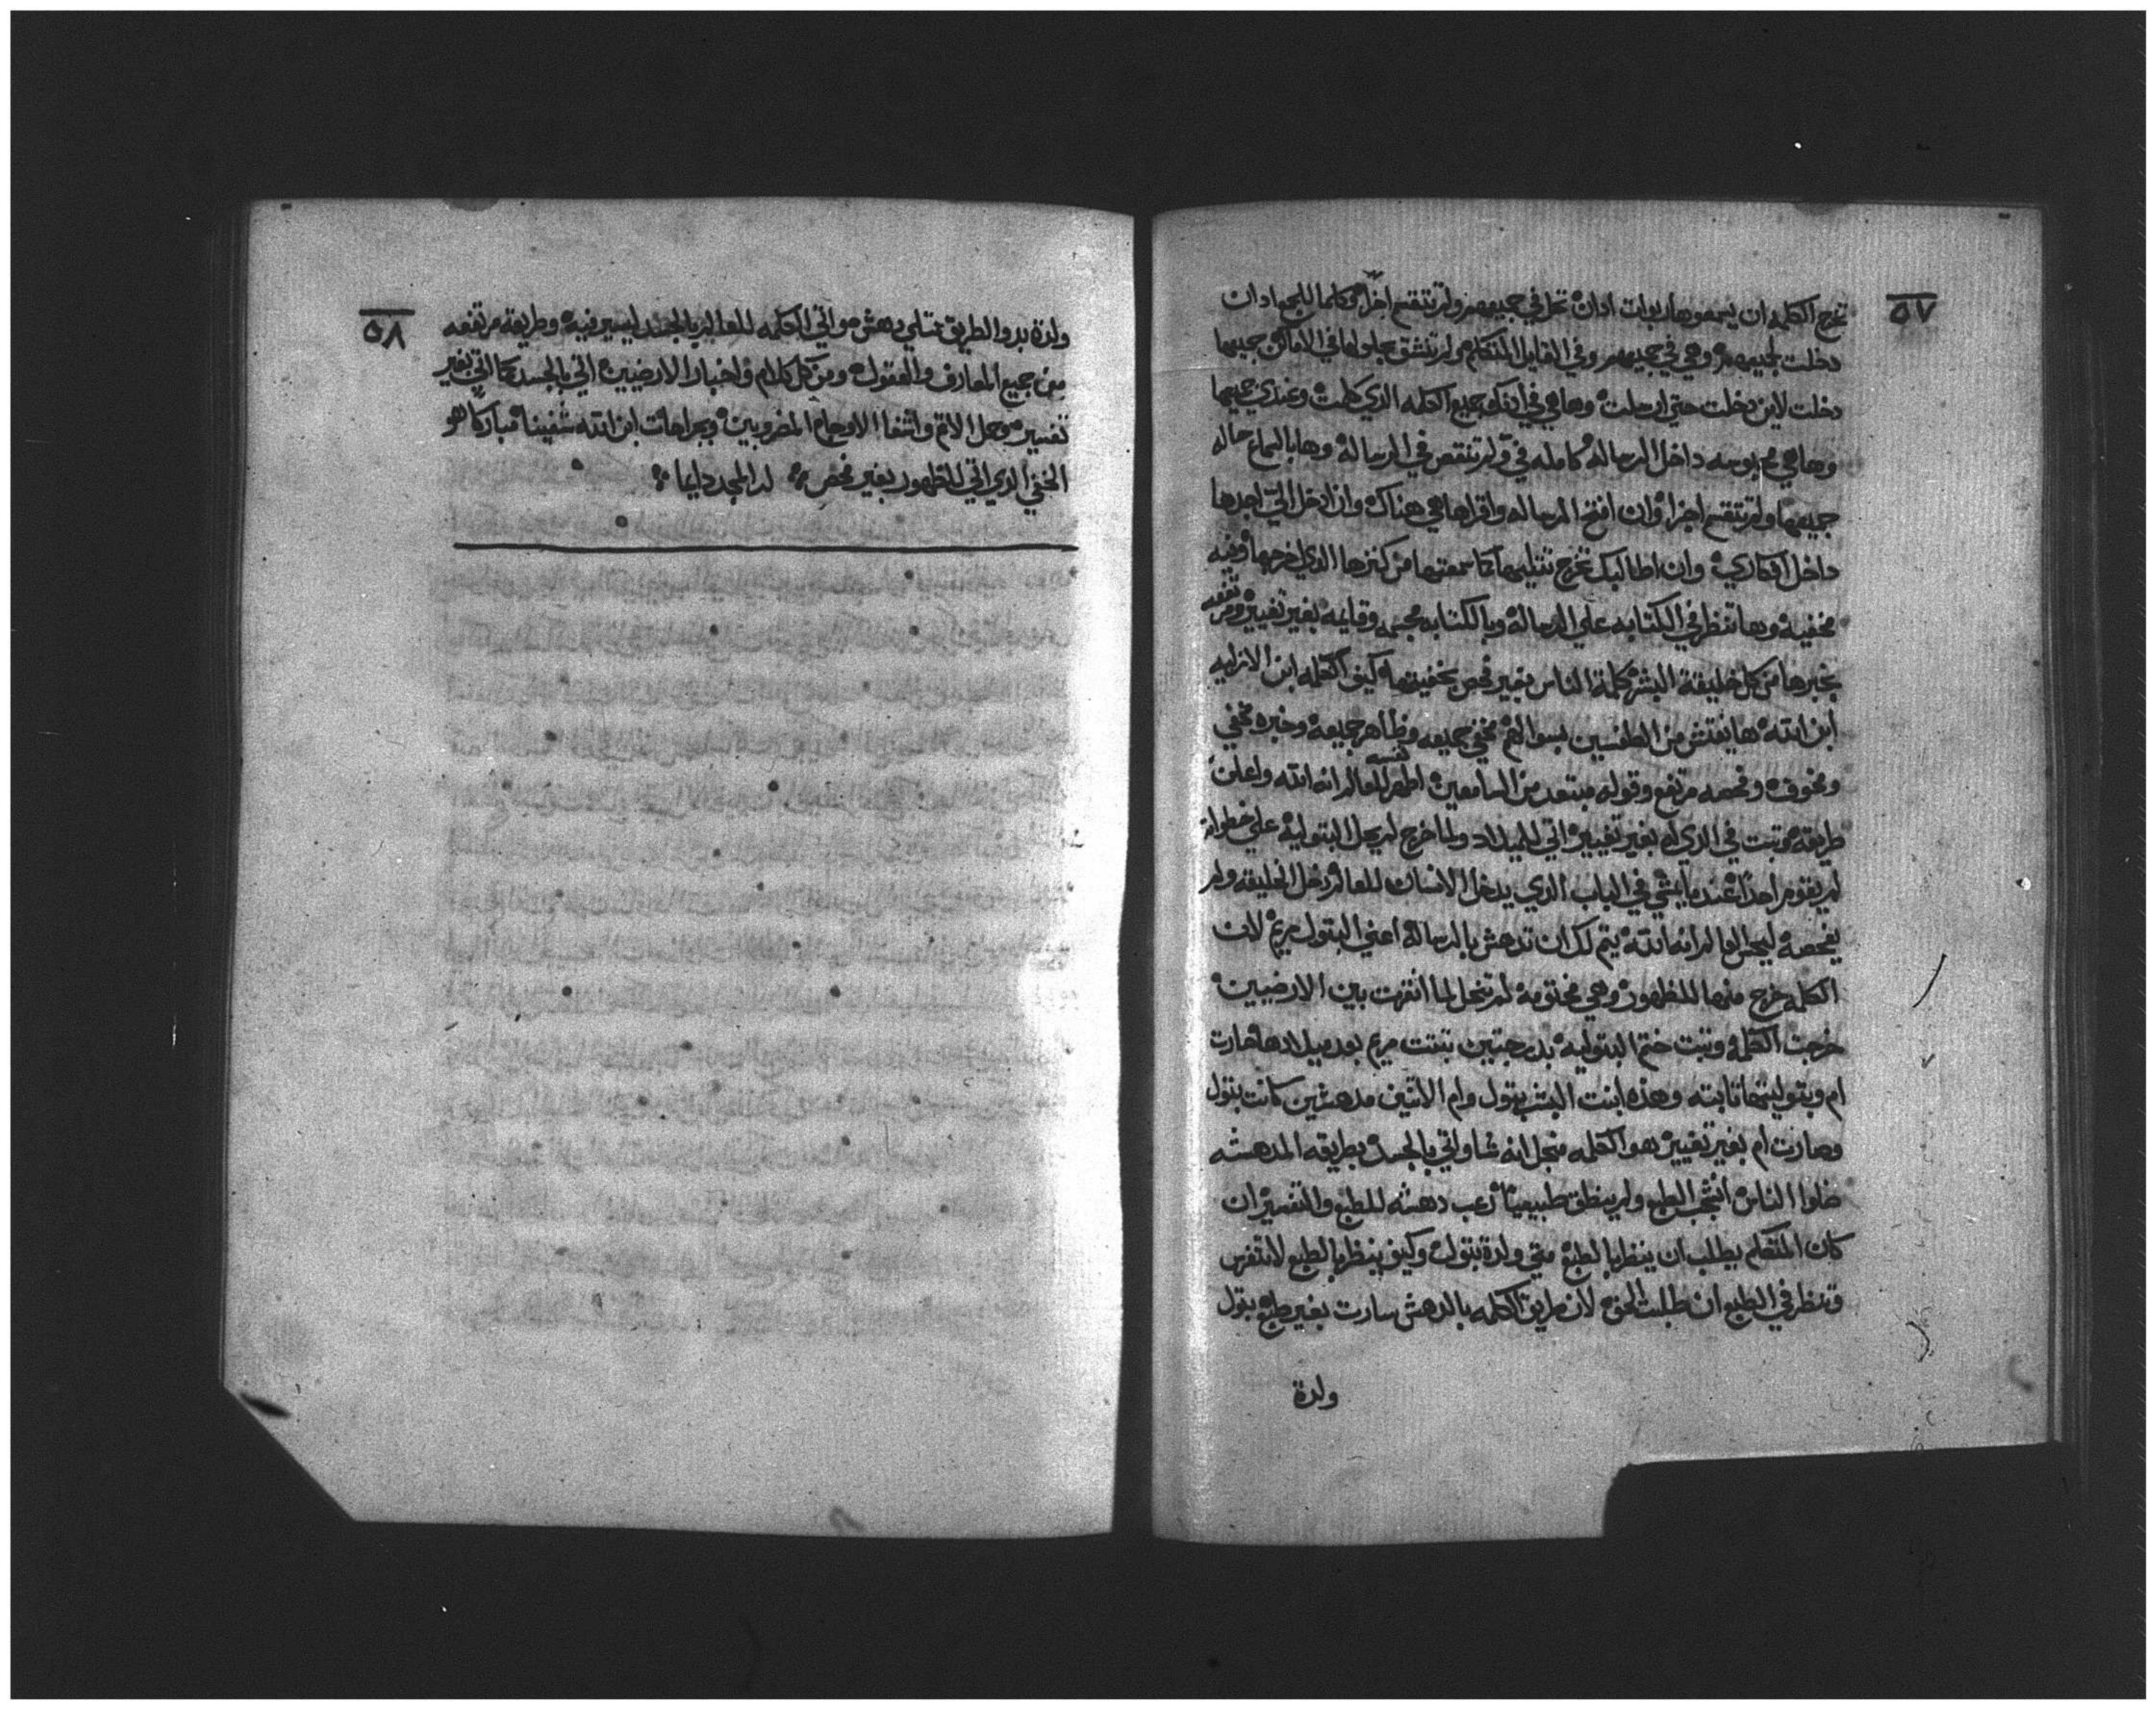 ٥٧
تخرج الكلمه ان يسمعوها ربوات ادان تحل في جميعهم ولم تنقسم اجزا وكلما للجمع ادان
دخلت لجميعهم وهي في جميعهم وفي القايل المتكلم ولم تنشق بحلولها في الاماكن جميعها
دخلت لاين دخلت حتي ارسلت وها هي في ادنك جميع الكلمه الذي كلمت وعندي جميعها
وها هي محبوسه داخل الرساله كامله في ولم تنقص في الرساله وها بالسماع حاله
جميعها ولم تنقسم اجزا وان افتح الرساله واقراها هي هناك وان ادخل الي اجدها
داخل افكاري وان اطالبك تخرج تتليها كما سمعتها من كنزها الذي اخرجها وفيه
مخفيه وها تنظر في الكتابه علي الرساله وبالكتابه مجسمه وقايمه بغير تغيير ومرتفعه
بخبرها من كل خليقة البشر كلمة الناس بغير فحص بخفيتها كيف الكلمه ابن الازليه
ابن الله ها يفتش من الطقسين بسوالهم مخفي جميعه وظاهر جميعه وخبره مخفي
ومخوف وفحصه مرتفع وقوله مبتعد من السامعين اظهر نفسه للعالم انه الله واعلن
طريقه وتبت في الذي له بغير تغيير اتي للميلاد ولما خرج لم يحل البتوليه علي خطواته
لم يقوم احدا عندما يمشي في الباب الذي يدخل الانسان للعالم دخل الخليقه ولم
يفحصه ليحل العالم انه الله يتم لك ان تدهش بالرساله اعني البتول مريم لان
الكلمه خرج منها للظهور وهي مختومه لم تنحل لما انقرت بين الارضيين
خرجت الكلمه وتبت ختم البتوليه بدرجتين تبتت مريم بعد ميلادها صارت
ام وبتوليتها تابته وهذه ابنت البشر بتول وام الاتنين مدهشين كانت بتول
وصارت ام بغير تغيير هو الكلمه منجل انه شا واتي بالجسد بطريقه المدهشه
ضلوا الناس انحجب الطبع ولم ينطق طبيعيا رعب دهشه للطبع والتفسير ان
كان المتكلم يطلب ان ينظر بالطبع متي ولدة بتول وكيف ينظر بالطبع لا تتفرس
وتنظر في الطبع ان طلبت الحق لان طريق الكلمه بالدهش سارت بغير طبع بتول
ولدة
٥٨
ولدة بدو الطريق تمتلي دهش مواتي الكلمه للعالم بالجسد ليسير فيه وطريقه مرتفعه
من جميع المعارف والعقول ومن كل كلام واخبار الارضيين اتي بالجسد كما اتي بغير
تفسير وحمل الالام واشفا الاوجاع المضروبين وبجراحات ابن الله شفينا مباركا هو
الخفي الذي اتي للظهور بغير فحص له المجد دايما